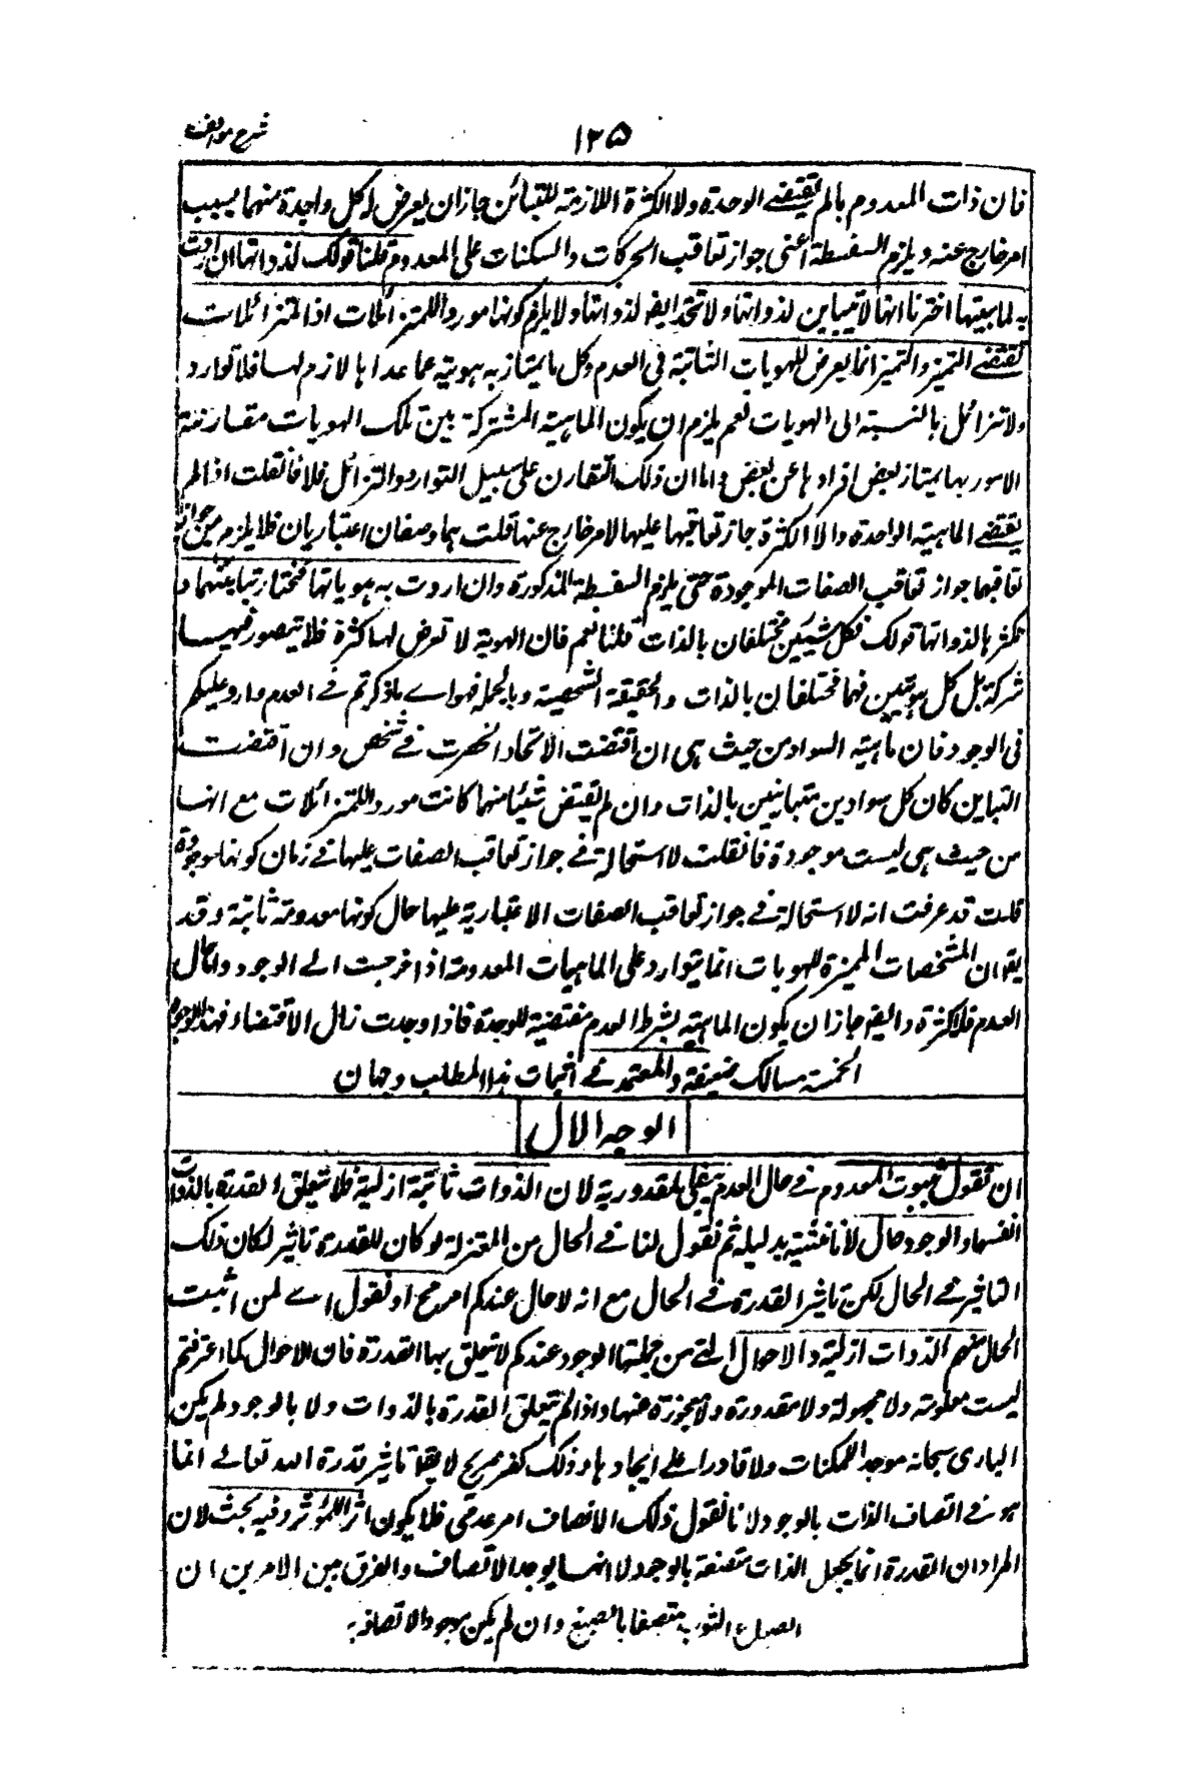 شرح مواقف
١٢٥
فان ذات المعدوم بالم يقتضے الوحدة ولا الكثرة اللازمة للتبائن جاز ان يعرض له كل واحدة منهما بسبب
امر خارج عنه ويلزم السفسطة اعنى جواز تعاقب الحركات والسكنات على المعدوم قلنا قولك لذواتها ان اردت
به لماهيتها اخترنا انها لا تتباين لذواتها ولا تتحد ايضا لذواتها ولا يلزم كونها مورد اللمتزائلات اذ المتزائلات
تقتضے التميز والتميز انما يعرض للهويات الثابتة فى العدم وكل ما يمتاز به هوية عما عداها لازم لها فلا توارد
ولا تزائل بالنسبة الى الهويات نعم يلزم ان يكون الماهية المشتركة بين تلك الهويات مقارنة
الامور بها يمتاز بعض افرادها عن بعض واما ان ذلك التقارن على سبيل التوارد والتزائل فلا فانقلت اذا لم
يقتضے الماهية الواحدة والا الكثرة جاز تعاقبها عليها لامر خارج عنها قلت هما وصفان اعتباريان فلا يلزم من جواز
تعاقبها جواز تعاقب الصفات الموجودة حتى يلزم السفسطة المذكورة وان اردت به هوياتها فنختار تباينهما و
تكثرها لذواتها قولك فكل شيئين مختلفان بالذات قلنا نعم فان الهوية لا تعرض لها كثرة فلا يتصور فيها
شركة بل كل هويتين فهما مختلفان بالذات والحقيقة الشخصية وبالجملة فهو اے ماذكرتم فے العدم وارد عليكم
فى الوجود فان ماهية السواد من حيث هى ان اقتضت الاتحاد انحصرت فے شخص وان اقتضت
التباين كان كل سوادين متباينين بالذات وان لم يقتض شيئا منهما كانت مورد اللمتزائلات مع انها
من حيث هى ليست موجودة فانقلت لا استحالة فے جواز تعاقب الصفات عليها فے زمان كونها موجودة
قلت قد عرفت انه لا استحالة فے جواز تعاقب الصفات الاعتبارية عليها حال كونها معدومة ثابتة وقد
يقال ان المشخصات المميزة للهويات انما يتوارد على الماهيات المعدومة اذا خرجت الے الوجود واما حال
العدم فلا كثرة وايضا جاز ان يكون الماهية بشرط العدم مقتضية للوحدة فاذا وجدت زال الاقتضاء فهذه الوجوه
الخمسة مسالك ضعيفة والمعتمد فے اثبات هذا المطلب وجهان
الوجه الاول
ان نقول ثبوت المعدوم فے حال العدم ينفى المقدورية لان الذوات ثابتة ازلية فلا يتعلق القدرة بالذوات
انفسها والوجود حال لانا نثبته بدليله ثم نقول لنفاة الحال من المعتزلة لو كان للقدرة تاثير لكان ذلك
التاثير فے الحال لكن تاثير القدرة فے الحال مع انه لا حال عندكم امر مح او نقول اے لمن اثبت
الحال منهم الذوات ازلية والاحوال التے من جملتها الوجود عندكم لا يتعلق بها القدرة فان الاحوال كما اعترفتم
ليست معلومة ولا مجهولة ولا مقدورة ولا معجوزة عنها واذا لم يتعلق القدرة بالذوات ولا بالوجود لم يكن
البارى سبحانه موجد الممكنات ولا قادرا علے ايجادها وذلك كفر صريح لا يقال تاثير قدرة الله تعالے انما
هو فے اتصاف الذات بالوجود لانا نقول ذلك الاتصاف امر عدمى فلا يكون اثر اللموثر وفيه بحث لان
المراد ان القدرة انما يجعل الذات متصفة بالوجود لا انها يوجد الاتصاف والفرق بين الامرين ان
الصباغ الثوب متصفا بالصبغ وان لم يكن موجود الاتصافه به